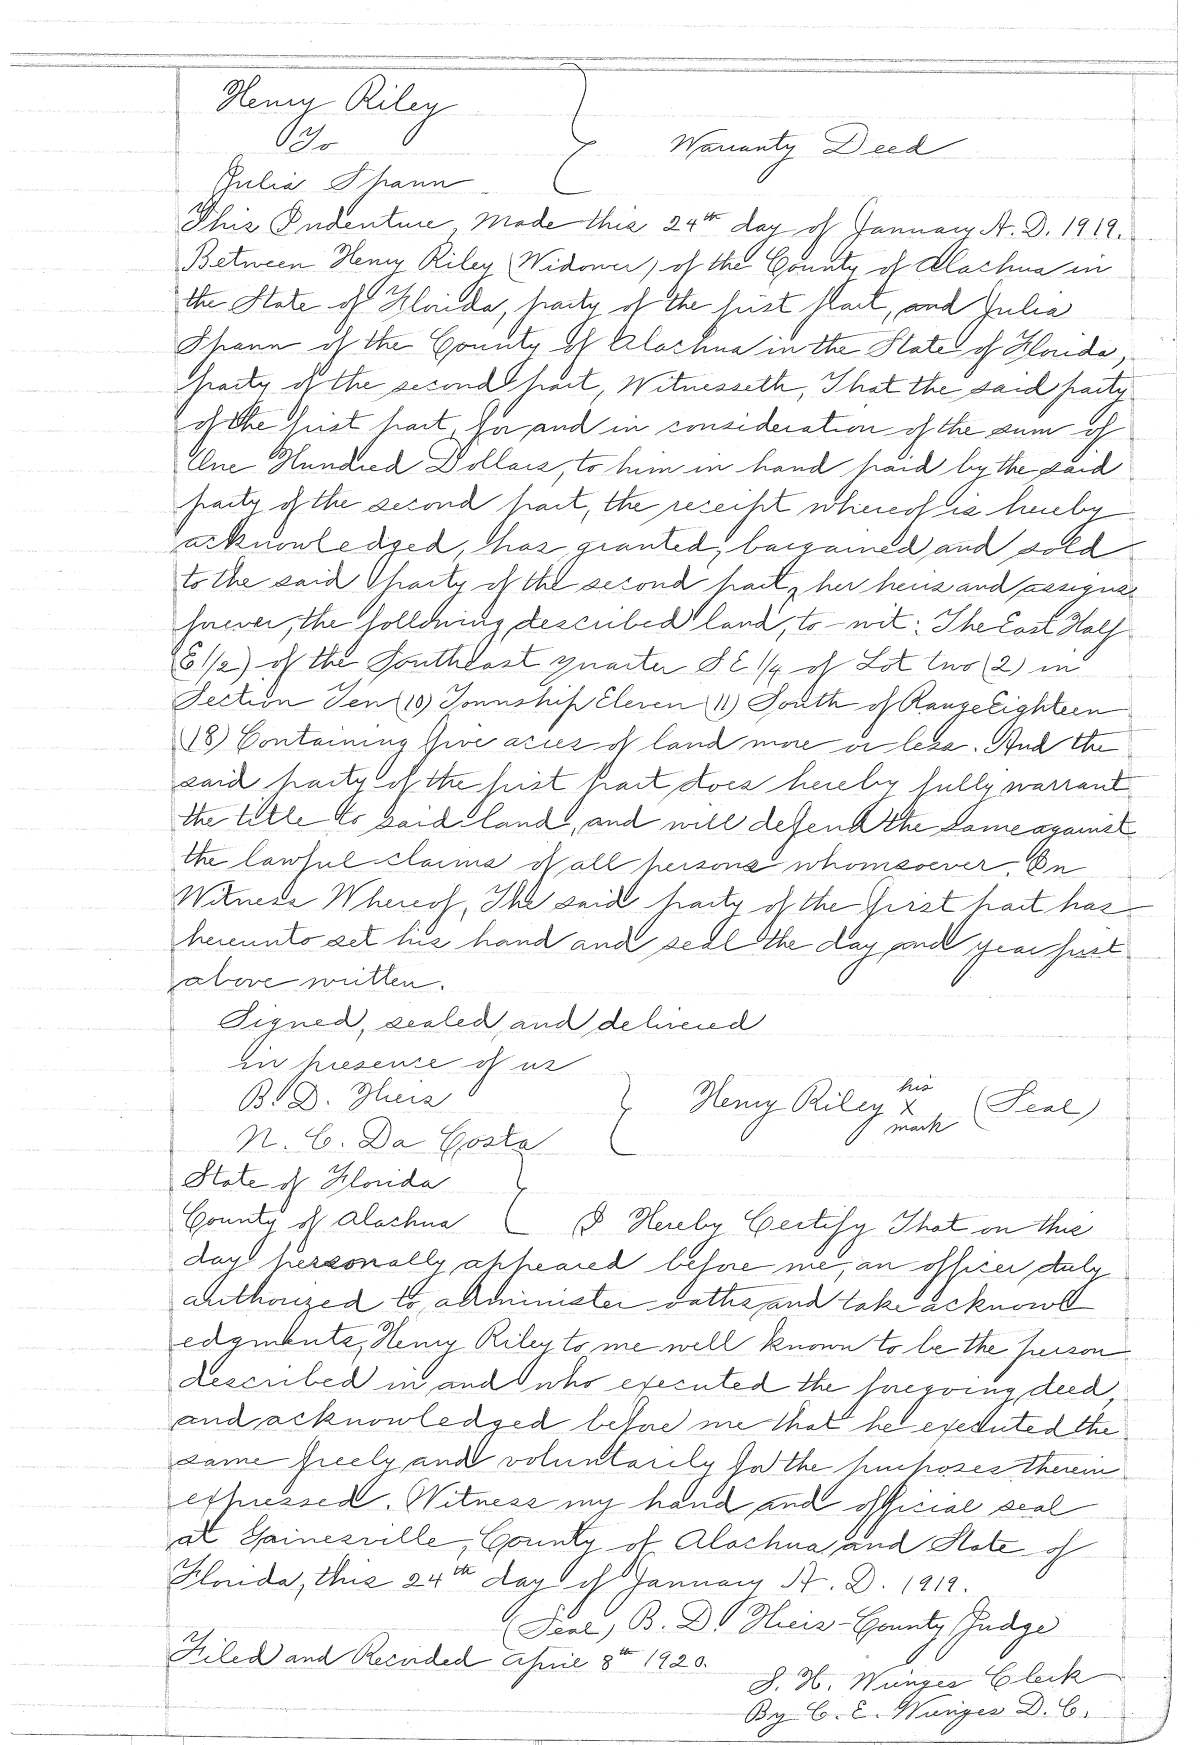 Henry Riley
To
Warranty Deed
Julia Spann
This Indenture, Made this 24th day of January A. D. 1919.
Between Henry Riley (Widower) of the County of Alachua in
the State of Florida, party of the first part, and Julia
Spann of the County of Alachua in the State of Florida,
party of the second part, Witnesseth, That the said party
of the first part, for and in consideration of the sum of
One Hundred Dollars, to him in hand paid by the said
party of the second part, the receipt whereof is hereby
acknowledged, has granted, bargained and sold
to the said party of the second part, her heirs and assigns
forever, the following described land, to-wit: The East Half
(E 1/2) of the Southeast quarter S E 1/4 of Lot two (2) in
Section Ten (10) Township Eleven (11) South of Range Eighteen
(18) Containing five acres of land more or less. And the
said party of the first part does hereby fully warrant
the title to said land, and will defend the same against
the lawful claims of all persons whomsoever. In
Witness Whereof, The said party of the first part has
hereunto set his hand and seal the day and year first
above written.
Signed, sealed and delivered
in presence of us
B. D. Hiers
Henry Riley his x mark (Seal)
N. C. Da Costa
State of Florida
County of Alachua I Hereby Certify That on this
day personally appeared before me, an officer duly
authorized to administer oaths and take acknowl
edgments, Henry Riley to me well known to be the person
described in and who executed the foregoing deed,
and acknowledged before me that he executed the
same freely and voluntarily for the purposes therein
expressed. Witness my hand and official seal
at Gainesville, County of Alachua and State of
Florida, this 24th day of January A. D. 1919.
(Seal) B. D. Hiers - County Judge
Filed and Recorded April 8th 1920.
S. H. Wienges Clerk
By C. E. Wienges D. C.